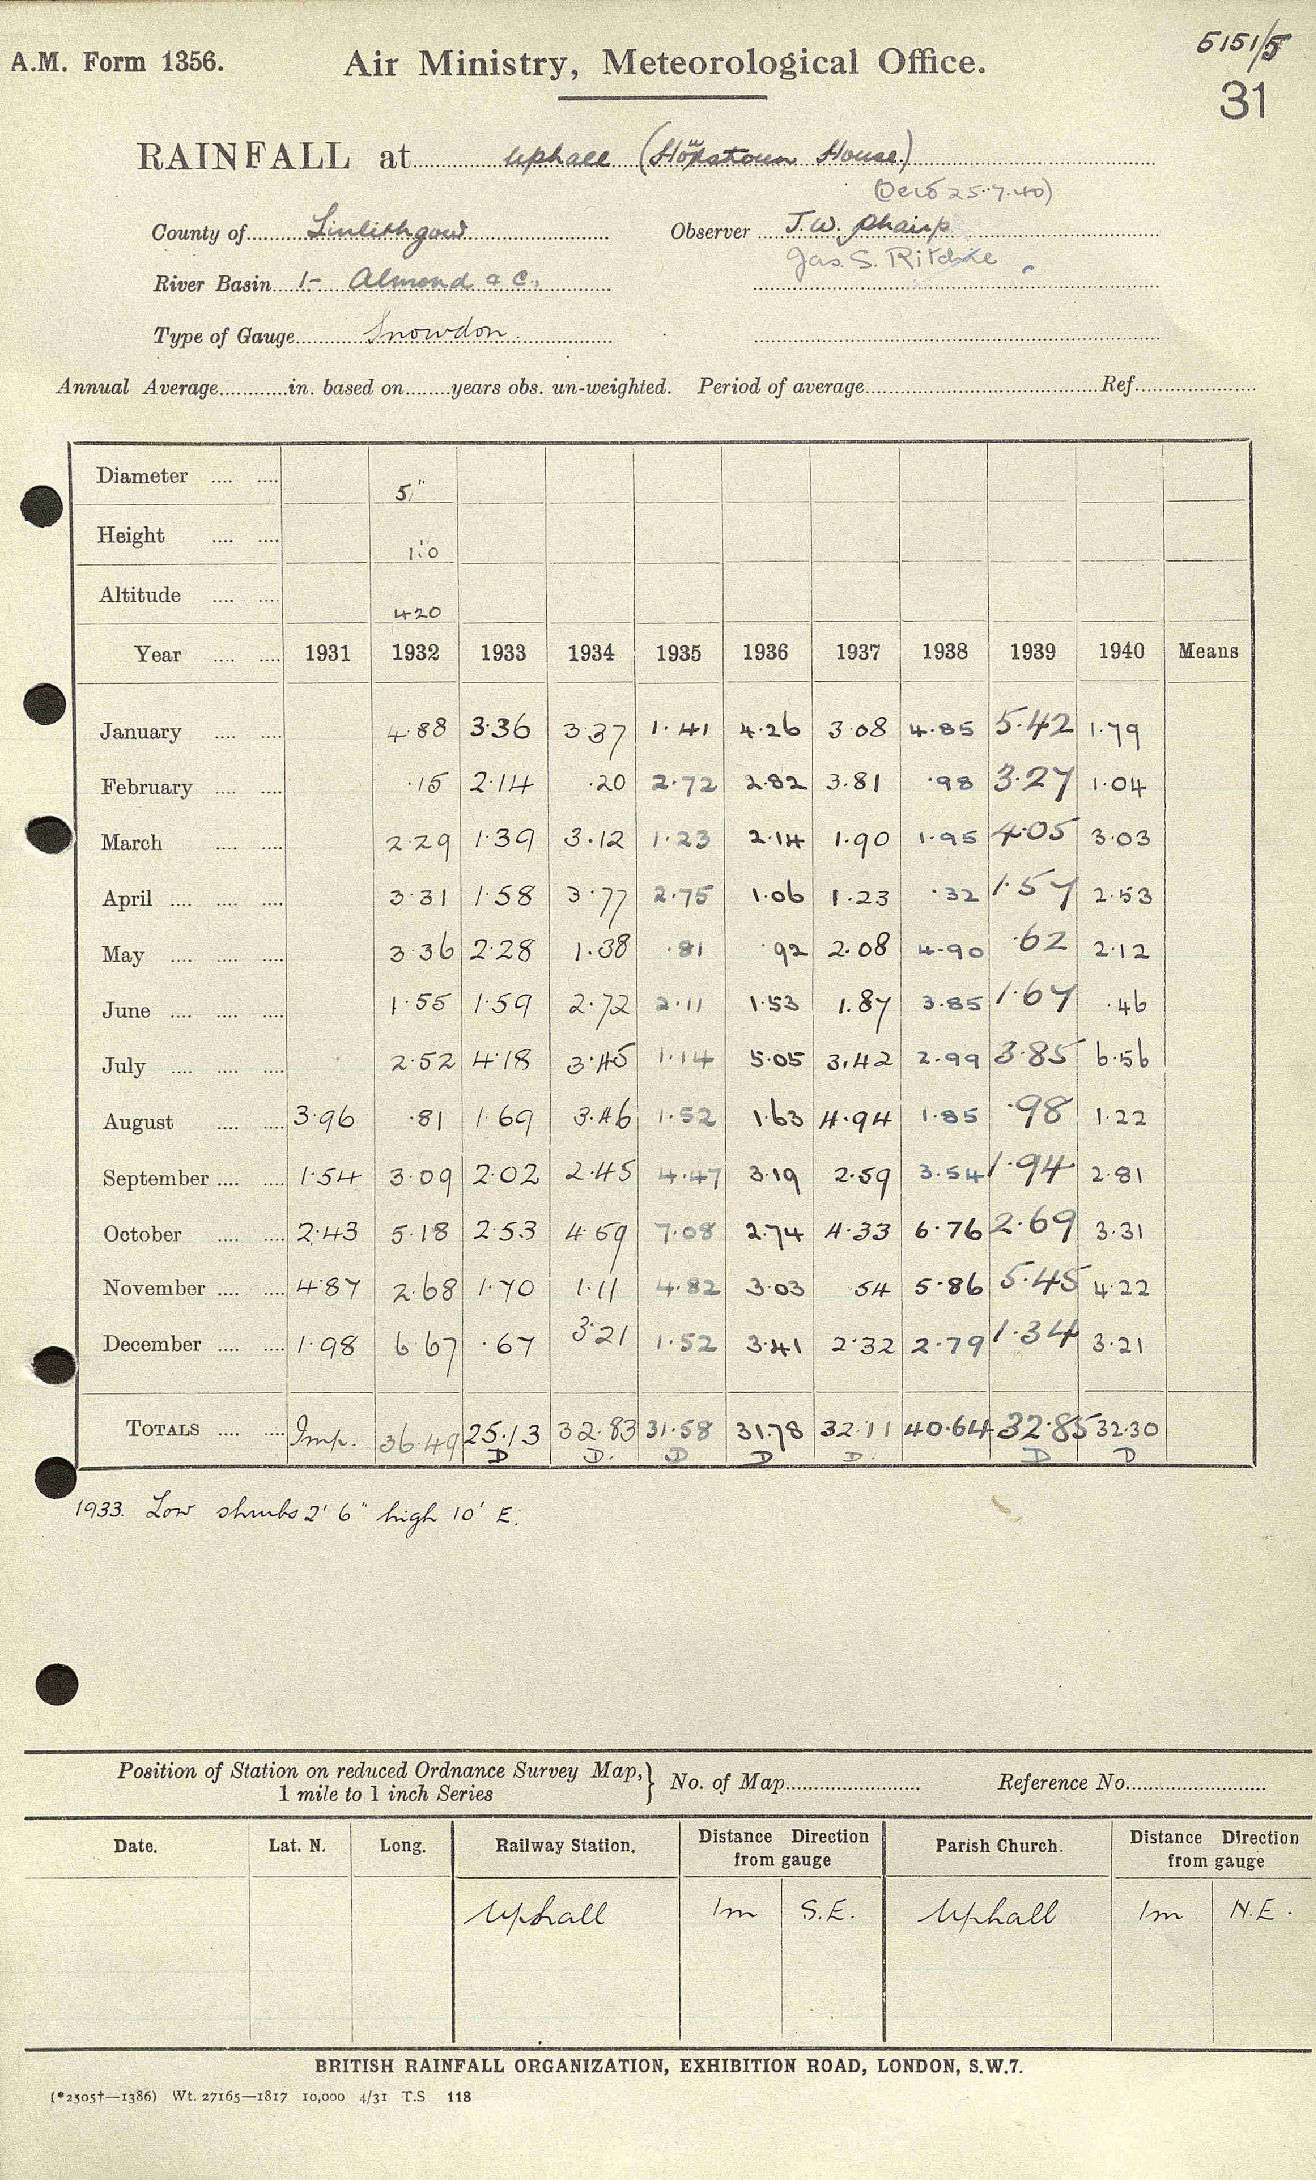 A.M. Form 1356.
Air Ministry, Meteorological Office.
5151/5
31
RAINFALL at Uphall (Hopetoun House)
(Dec'd 25.7.40)
County of Linlithgow Observer J.W. Shairp
Jas. S. Ritchie
River Basin 1- Almond & C.
Type of Gauge Snowdon.
Annual Average in. based on years obs. un-weighted. Period of average Ref.
Diameter 5"
Height 1'.0
Altitude 420
Year 1931 1932 1933 1934 1935 1936 1937 1938 1939 1940 Means
January 4.88 3.36 3.37 1.41 4.26 3.08 4.85 5.42 1.79
February .15 2.14 .20 2.72 2.82 3.81 .98 3.27 1.04
March 2.29 1.39 3.12 1.23 2.14 1.90 1.95 4.05 3.03
April 3.31 1.58 3.77 2.75 1.06 1.23 .32 1.57 2.53
May 3.36 2.28 1.38 .81 .92 2.08 4.90 .62 2.12
June 1.55 1.59 2.72 2.11 1.53 1.87 3.85 1.67 .46
July 2.52 4.18 3.45 1.14 5.05 3.42 2.99 3.85 6.56
August 3.96 .81 1.69 3.46 1.52 1.63 4.94 1.85 .98 1.22
September 1.54 3.09 2.02 2.45 4.47 3.19 2.59 3.54 1.94 2.81
October 2.43 5.18 2.53 4.59 7.08 2.74 4.33 6.76 2.69 3.31
November 4.87 2.68 1.70 1.11 4.82 3.03 .54 5.86 5.45 4.22
December 1.98 6.67 .67 3.21 1.52 3.41 2.32 2.79 1.34 3.21
TOTALS Imp. 36.49 25.13 32.83 31.58 31.78 32.11 40.64 32.85 32.30
D D. D D D. D D
1933. Low shrubs 2' 6" high 10' E.
Position of Station on reduced Ordnance Survey Map,} No. of Map Reference No.
1 mile to 1 inch Series
Date. Lat. N. Long. Railway Station. Distance Direction from gauge Parish Church. Distance Direction from gauge
Uphall 1m S.E. Uphall 1m N.E.
BRITISH RAINFALL ORGANIZATION, EXHIBITION ROAD, LONDON, S.W.7.
(*2505†—1386) Wt. 27165—1817 10,000 4/31 T.S 118